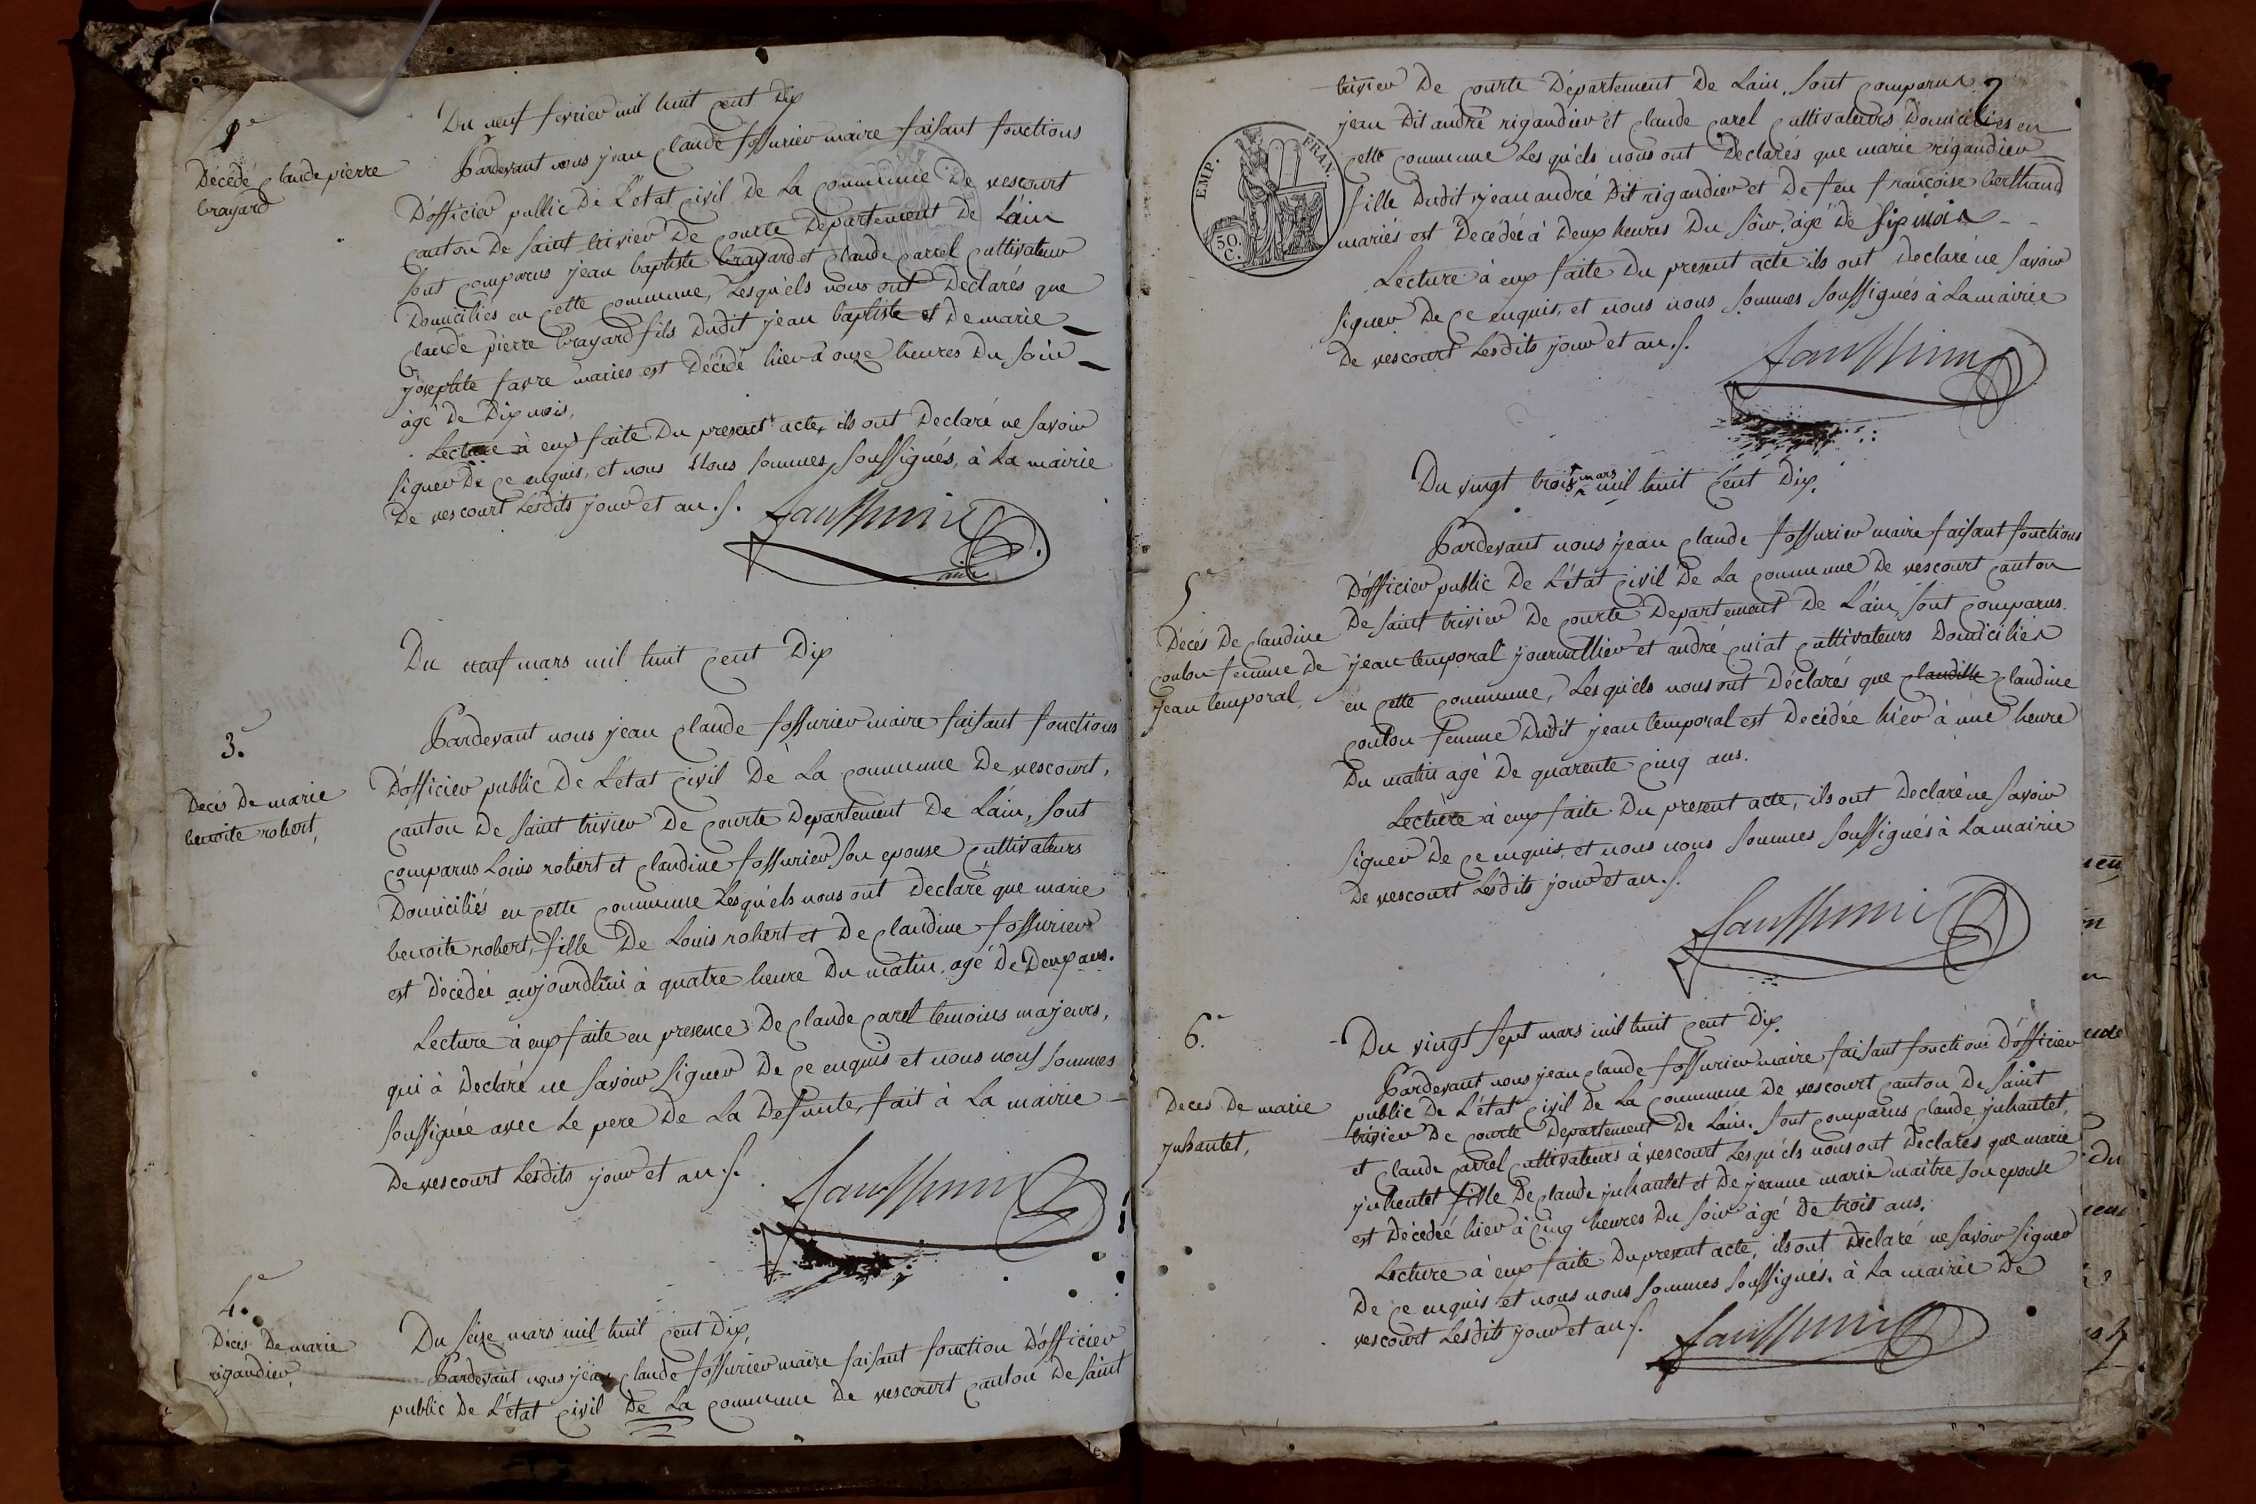 2e
Décédé claude pierre
brayard
Du neuf fevrier mil huit cent dix
Pardevant nous jean claude fossurier maire faisant fonctions
D'officier public De L'etat civil De La commune De vescourt
canton De saint trivier De courte Departement De L'ain
sont comparus jean baptiste brayard et claude carrel cultivateur
Domiciliés en cette commune, Lesquels nous ont Declarés que
claude pierre brayard fils Dudit jean baptiste et De marie
josephte favre mariés est Décédé hier à onze heures Du soir
âgé De Dix mois,
Lecture à eux faite Du present acte, ils ont Declaré ne savoir
signer De ce enquis, et nous Nous sommes soussignés, à La mairie
De vescourt Lesdits jour et an ./.
3.e
Décés De marie
benoite robert,
Du neuf mars mil huit cent Dix
Pardevant nous jean claude fossurier maire faisant fonctions
D'officier public De L'état civil De La commune De vescourt,
canton De saint trivier De courte Departement De L'ain, sont
comparus Louis robert et claudine fossurier son epouse cultivateurs
Domiciliés en cette commune Lesquels nous ont Declaré que marie
benoite robert, fille De Louis robert et De claudine fossurier
est décédée aujourdhui à quatre heure Du matin, agé De Deux ans.
Lecture à eux faite en presence De claude carel temoins majeurs,
qui à Declaré ne savoir signer De ce enquis et nous nous sommes
soussignée avec Le pere De La Defunte, fait à La mairie
De vescourt Lesdits jour et an ./.
4.e
Décés De marie
rigaudier,
Du seize mars mil huit cent Dix,
Pardevant nous jean claude fossurier maire faisant fonction D'officier
public De L'état civil De La commune De vescourt canton De saint
2
EMP. FRAN.
50. C.
trivier De courte Département De L'ain, sont comparus
jean Dit andré rigaudier et claude carel cultivateurs Domiciliés en
cette commune Lesquels nous ont Declarés que marie rigaudier
fille Dudit jean andré Dit rigaudier et De feu françoise berthaud
mariés est Decédée à Deux heures Du soir, âgé De six mois
Lecture à eux faite Du present acte ils ont Declaré ne savoir
signer De ce enquis, et nous nous sommes soussignés à La mairie
De vescourt Lesdits jour et an ./.
5.e
Décés De claudine
coulon femme De
jean temporal,
Du vingt trois mars mil huit cent Dix,
Pardevant nous jean claude fossurier maire faisant fonctions
D'officier public De L'état civil De La commune De vescourt canton
De saint trivier De courte Departement De L'ain, sont comparus.
jean temporal journallier et andré cuiat cultivateurs Domiciliés
en cette commune, Lesquels nous ont Déclarés que claudille claudine
coulon femme Dudit jean temporal est Decédée hier à une heure
Du matin agé De quarente cinq ans.
Lecture à eux faite Du present acte, ils ont Declaré ne savoir
signer De ce enquis, et nous nous sommes soussignés à La mairie
De vescourt Lesdits jour et an ./.
6.e
Deces De marie
juhautet,
Du vingt sept mars mil huit cent Dix,
Pardevant nous jean claude fossurier maire faisant fonctions D'officier
public De L'état civil De La commune De vescourt canton De saint
trivier De courte Departement De L'ain. sont comparus claude juhautet,
et claude carrel cultivateurs à vescourt Lesquels nous ont Declarés que marie
juhentet fille De claude juhautet et De jeanne marie maitre son epouse
est Decédée hier à cinq heures Du soir âgé De trois ans.
Lecture à eux faite Du present acte, ils ont Déclaré ne savoir signer
De ce enquis et nous nous sommes soussignés, à La mairie De
vescourt Lesdits jour et an ./.